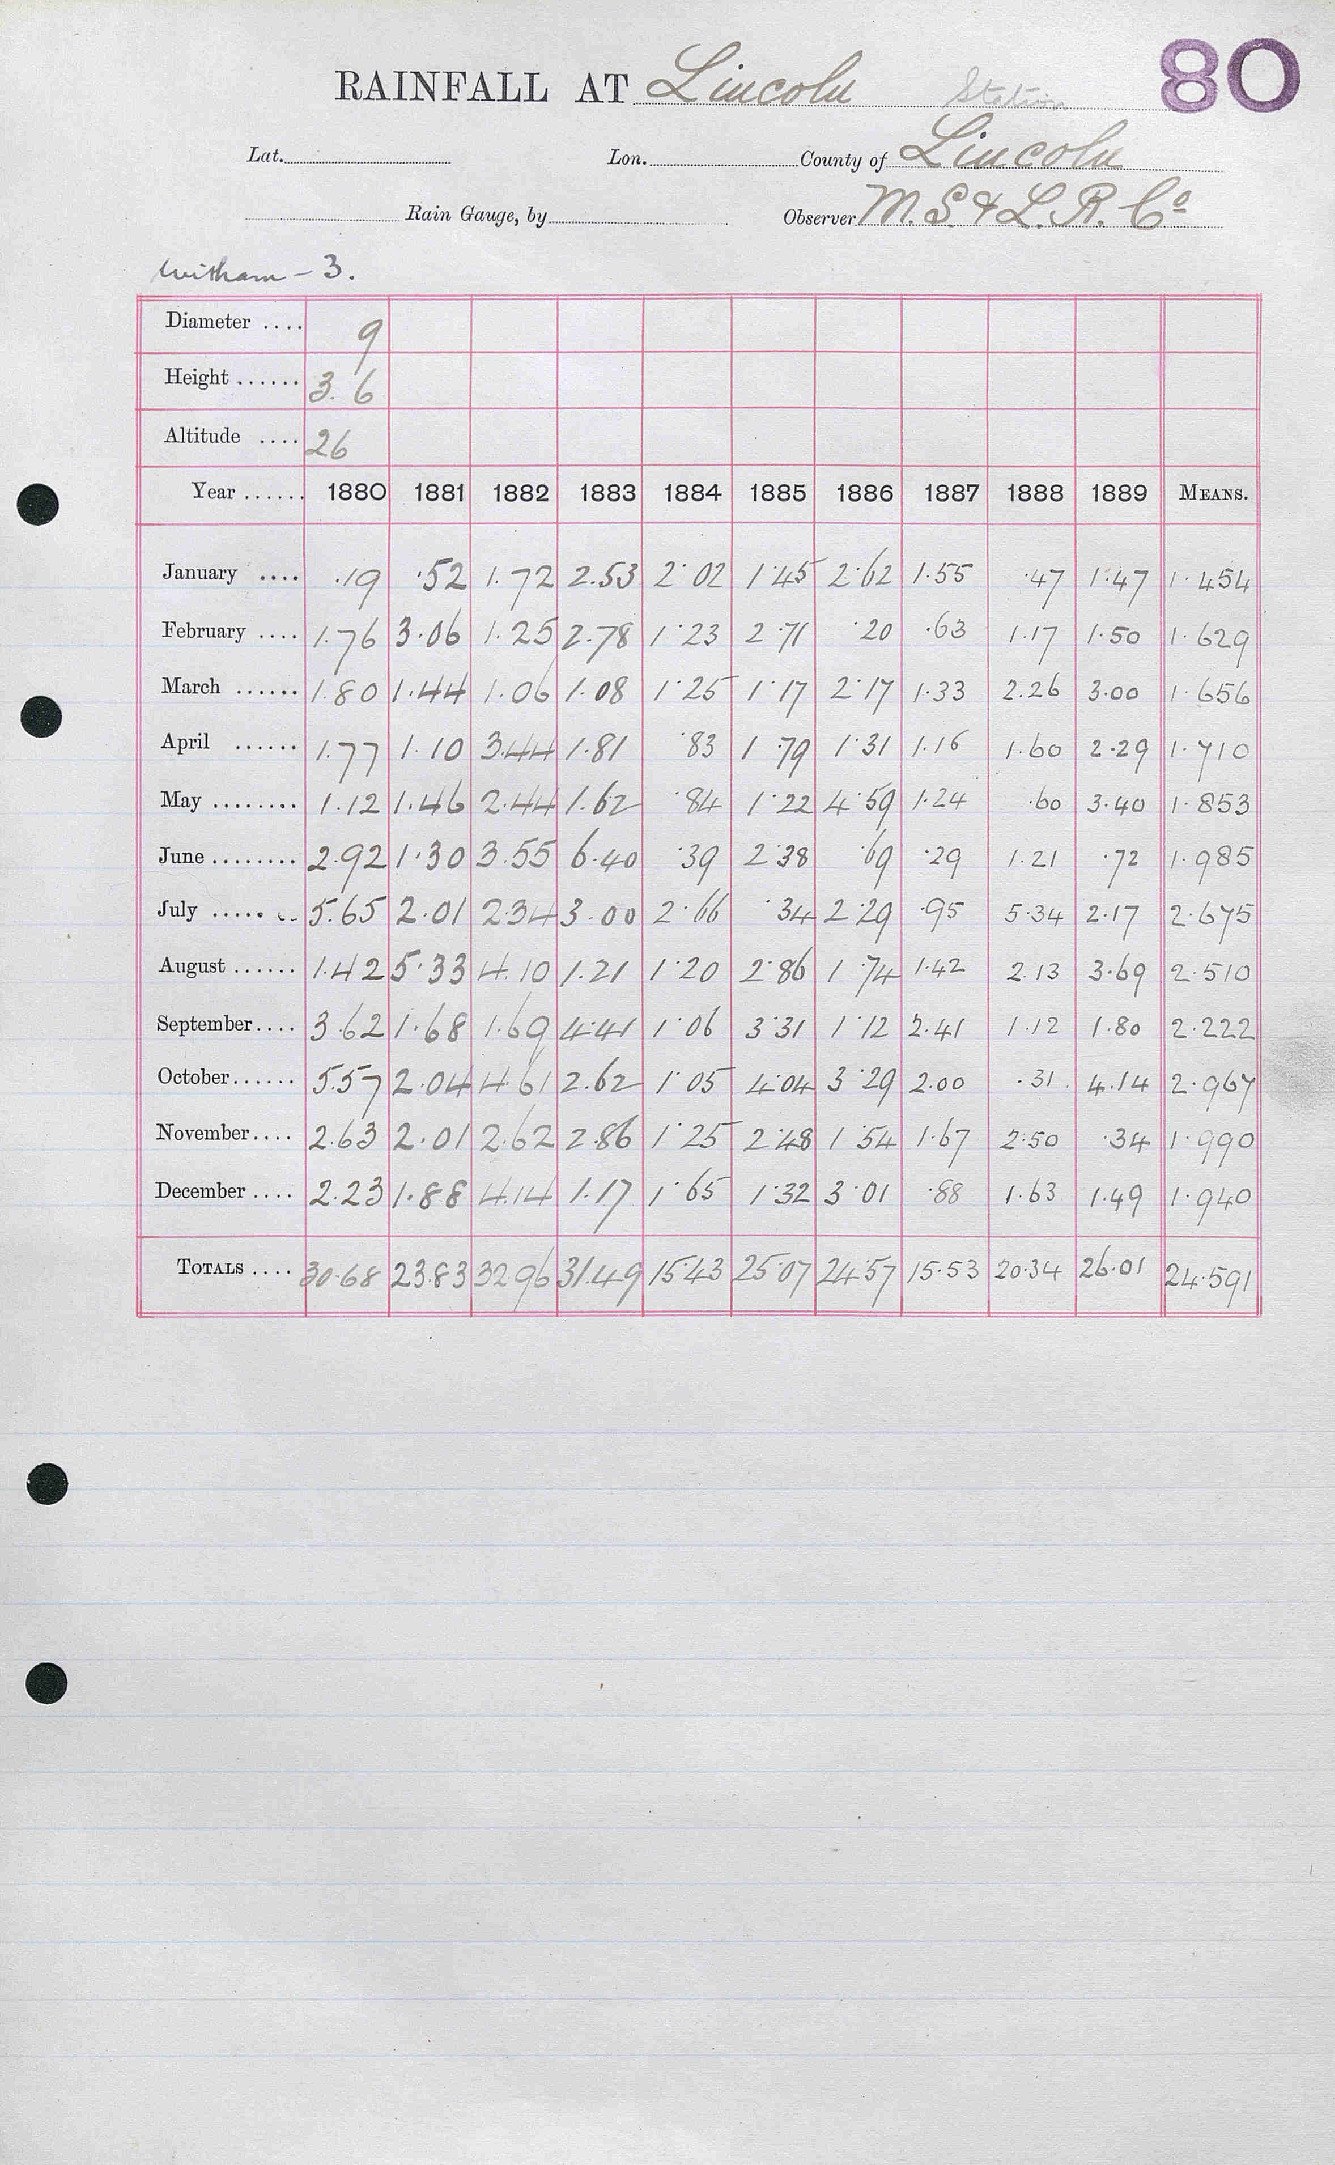 RAINFALL AT Lincoln Station 80
Lat. Lon. County of Lincoln
Rain Gauge, by Observer M. S. & L. R. Co
Witham - 3.
Diameter .... 9
Height ...... 3. 6
Altitude .... 26
Year ...... 1880 1881 1882 1883 1884 1885 1886 1887 1888 1889 MEANS.
January .... .19 .52 1.72 2.53 2.02 1.45 2.62 1.55 .47 1.47 1.454
February .... 1.76 3.06 1.25 2.78 1.23 2.71 .20 .63 1.17 1.50 1.629
March ...... 1.80 1.44 1.06 1.08 1.25 1.17 2.17 1.33 2.26 3.00 1.656
April ...... 1.77 1.10 3.44 1.81 .83 1.79 1.31 1.16 1.60 2.29 1.710
May ........ 1.12 1.46 2.44 1.62 .84 1.22 4.59 1.24 .60 3.40 1.853
June ........ 2.92 1.30 3.55 6.40 .39 2.38 .69 .29 1.21 .72 1.985
July ........ 5.65 2.01 2.34 3.00 2.66 .34 2.29 .95 5.34 2.17 2.675
August ...... 1.42 5.33 4.10 1.21 1.20 2.86 1.74 1.42 2.13 3.69 2.510
September.... 3.62 1.68 1.69 4.41 1.06 3.31 1.12 2.41 1.12 1.80 2.222
October...... 5.57 2.04 4.61 2.62 1.05 4.04 3.29 2.00 .31 4.14 2.967
November.... 2.63 2.01 2.62 2.86 1.25 2.48 1.54 1.67 2.50 .34 1.990
December .... 2.23 1.88 4.14 1.17 1.65 1.32 3.01 .88 1.63 1.49 1.940
TOTALS .... 30.68 23.83 32.96 31.49 15.43 25.07 24.57 15.53 20.34 26.01 24.591